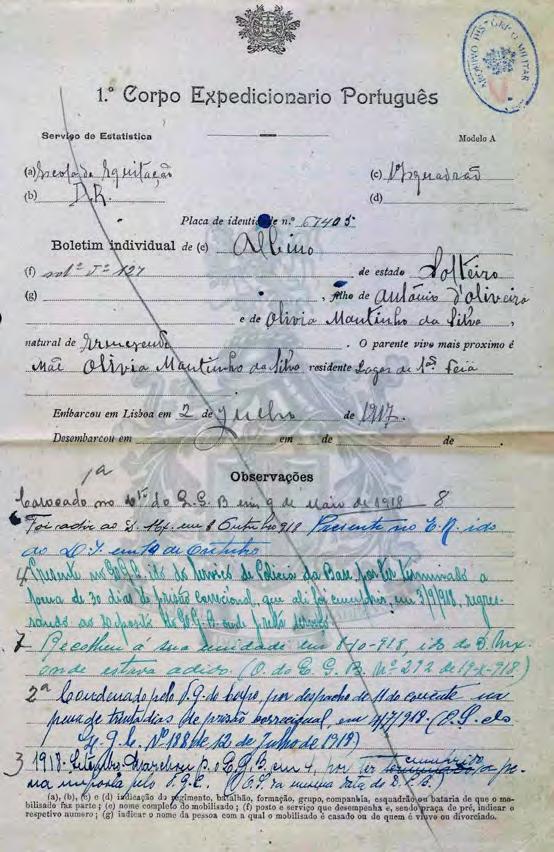 ARQUIVO HISTORICO MILITAR
1.º Corpo Expedicionario Português
Serviço de Estatistica
Modelo A
(a) Escola de Equitação
(c) 1º Esquadrão
(b) D. R.
(d)
Placa de identidade n.º 67405
Boletim individual de (e) Albino
(f) sold.º nº 127 de estado Solteiro
(g) , filho de António d'oliveira
e de Olivia Mantinho da Silva,
natural de . O parente vivo mais proximo é
Mãe Olivia Mantinho da Silva residente Lagos de Feia
Embarcou em Lisboa em 2 de Julho de 1917.
Desembarcou em em de de .
Observações
1ª
Colocado no do G. G. B em 9 de Maio de 1918 8
Foi adir ao D. em 8 Outubro 918 Presente no E. R. ido
do D. I. em 12 de Outubro
4 Presente no ido do Serviço de Policia da Base por ter terminado a
pena de 30 dias de prisão correcional, que ali foi cumprir, em 3/9/918, regres-
sando ao Deposito do G. G. B. onde presta serviço
7 Recolheu á sua unidade em 1-10-918, ido do D. Mx.
onde estava adido. (O. do E. G. B. Nº 272 de 19-X-918)
2ª Condenado pelo T. G. de Corpo, por despacho de 11 do corrente na
pena de trinta dias de prisão correcional em 4/7/918. (O. S. do
Q. G. C. Nº 188 de 12 de Julho de 1918)
3 1918. Setembro. Marchou p. o E. G. B. em 4, por ter cumprido a pe-
na imposta pelo T. G. C. (O. S. da mesma data do D. G. B.)
(a), (b), (c) e (d) indicação do regimento, batalhão, formação, grupo, companhia, esquadrão ou bataria de que o mo-
bilisado faz parte; (e) nome completo do mobilisado; (f) posto e serviço que desempenha e, sendo praça de pré, indicar o
respetivo numero; (g) indicar o nome da pessoa com a qual o mobilisado é casado ou de quem é viuvo ou divorciado.